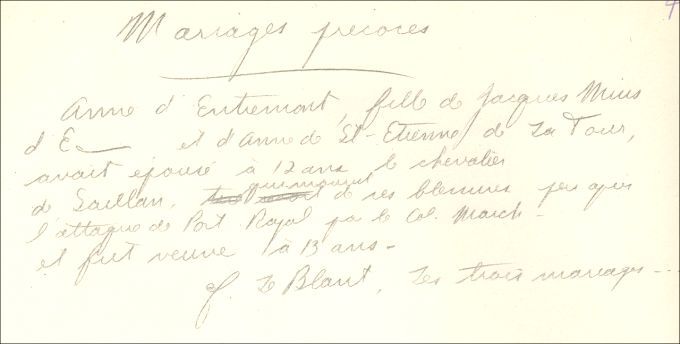 4
Mariages précoces
Anne d'Entremont, fille de Jacques Mius
d'E— et d'Anne de St-Etienne de La Tour,
avait épousé à 12 ans le chevalier
de Saillan, qui mourut de ses blessures peu après
l'attaque de Port Royal par le Col. March -
et fut veuve à 13 ans -
cf. Le Blant, Les trois mariages ---